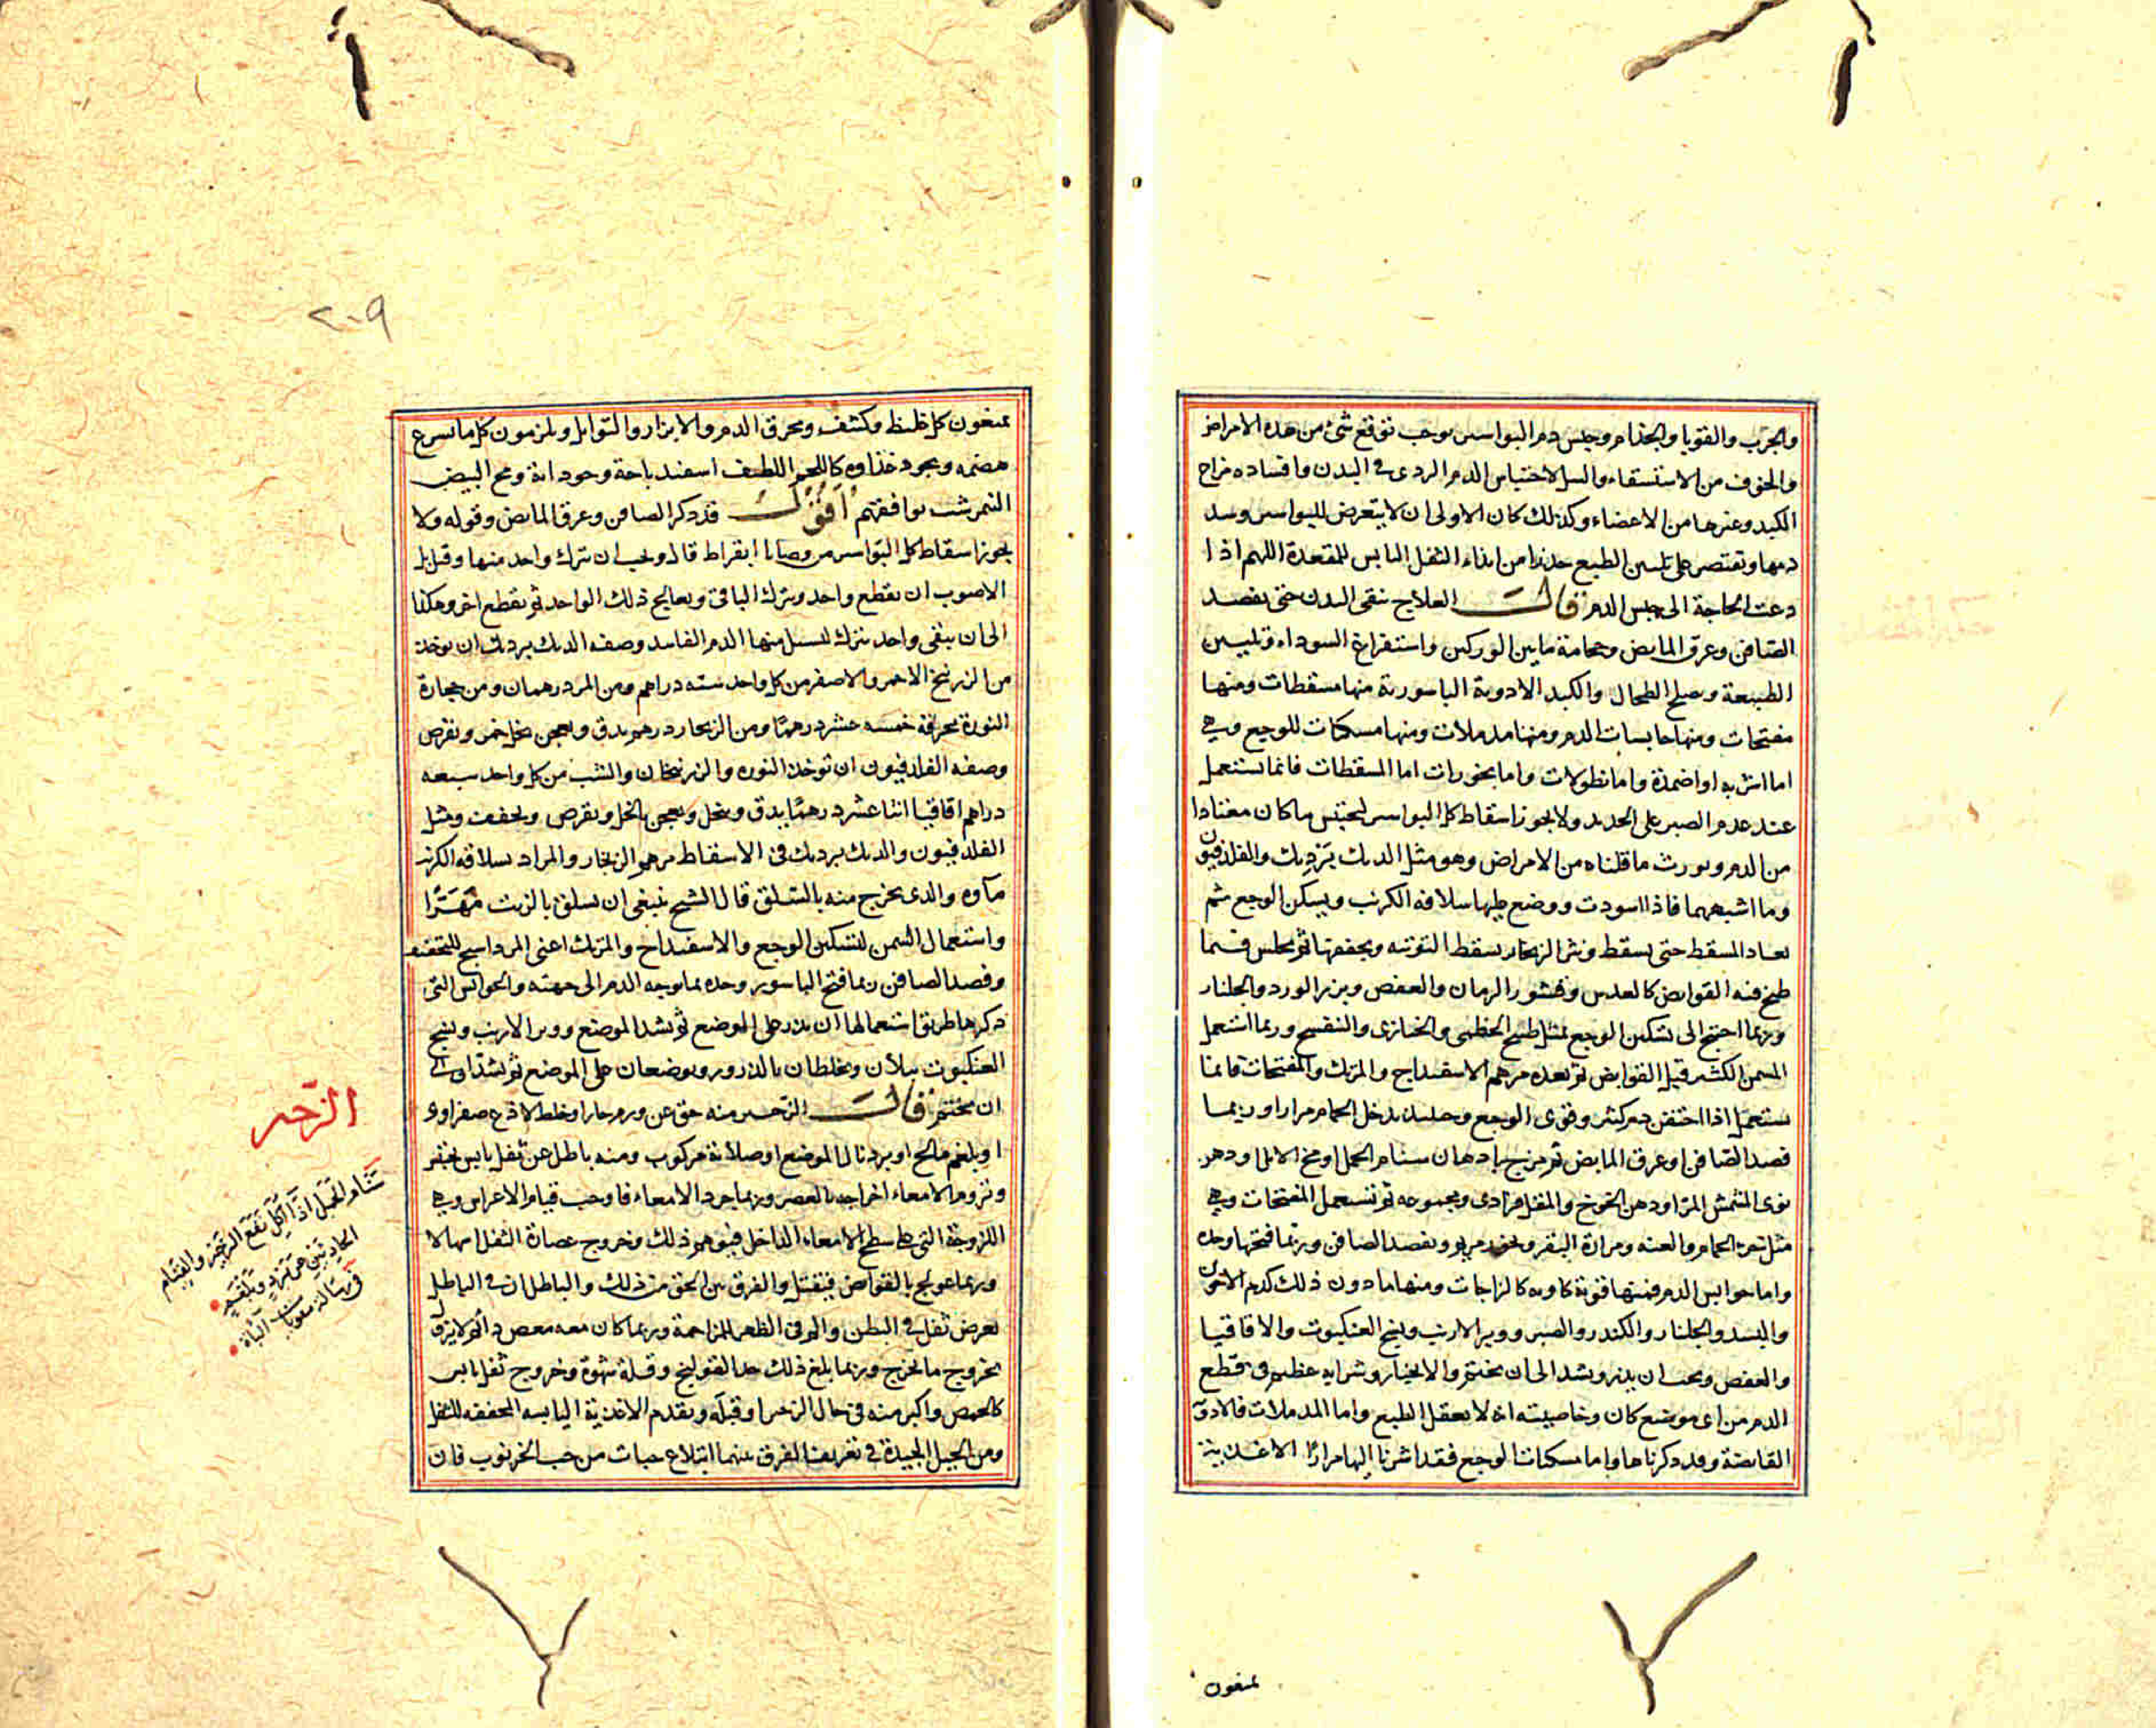 والجرب والقوبا والجذام وحبس دم البواسير يوجب توقع شئ من هذه الامراض
والخوف من الاستسقاء والسل لاحتباس الدم الردى فى البدن وافساده مزاج
الكبد وغيرها من الاعضاء وكذلك كان الاولى ان لا يتعرض للبواسير وسد
دمها ويقتصر على تليين الطبع حذرا من ايذاء الثفل اليابس للمقعدة اللهم اذا
دعت الحاجة الى حبس الدم قال العلاج ينقى البدن حتى بفصد
الصافن وعرق المابض وحجامة ما بين الوركين واستفراغ السوداء وتليين
الطبيعة ويصلح الطحال والكبد الادوية الباسورية منها مسقطات ومنها
مفتحات ومنها حابسات الدم ومنها مدملات ومنها مسكنات للوجع وهى
اما اشربه او اضمدة واما نطولات واما بخورات اما المسقطات فانما يستعمل
عند عدم الصبر على الحديد ولا يجوز اسقاط كل البواسير ليحتبس ما كان معتادا
من الدم ويورث ما قلناه من الامراض وهو مثل الديك برديك والفلدفيون
وما اشبههما فاذا اسودت ووضع عليها سلاقه الكرنب ويسكن الوجع ثم
يعاد المسقط حتى يسقط ونثر الزنجار يسقط التوتيه ويجففها ثم يجلس فيما
طبخ فيه القوابض كالعدس وقشور الرمان والعفص وبزر الورد والجلنار
وربما احتيج الى تسكين الوجع بمثل طبيخ الخطمى والخبازى والبنفسج وربما استعمل
السمن الكثير قبل القوابض ثم بعده مرهم الاسفيداج والمرتك والمفتحات فانما
يستعمل اذا احتقن دم كثير وقوى الوجع وحينئذ يدخل الحمام مرارا وربما
فصد الصافن او عرق المابض ثم مزج بادهان سنام الجمل او مخ الابل ودهن
نوى المشمش المر او دهن الخوخ والمقل فرادى ومجموعه ثم تستعمل المفتحات وهى
مثل بعر الحمام والعنه ومرارة البقر وبخور مريم وبفصد الصافن وربما فتحها وحده
واما حوابس الدم فمنها قوية كاويه كالزاجات ومنها ما دون ذلك كدم الاخوين
والبسد والجلنار والكندر والصبر ووبر الارنب ونسج العنكبوت والاقاقيا
والعفص ويجب ان يذر ويشد الى ان يختم والانجبار وشرابه عظيم فى قطع
الدم من اى موضع كان وخاصيته انه لا يعقل الطبع واما المدملات فالادوية
القابضة وقد ذكرناها واما مسكنات الوجع فقد اشرنا اليها مرارا الاغذية
يمنعون
٢٠٩
يمنعون كل غليظ وكشف ويحرق الدم والابزار والتوابل ويلزمون كل ما يسرع
هضمه ويجود غذاوه كاللحم اللطيف اسفيدباجة وجودابة ومح البيض
النمرشت يوافقهم اقول قد ذكر الصافن وعرق المابض وقوله ولا
يجوز اسقاط كل البواسير من وصايا ابقراط قال ويجب ان يترك واحد منها وقيل بل
الاصوب ان يقطع واحد ويترك الباقى ويعالج ذلك الواحد ثم يقطع اخر وهكذا
الى ان يبقى واحد يترك لتسيل منها الدم الفاسد وصفه الديك برديك ان يوخذ
من الزرنيخ الاحمر والاصفر من كل واحد سته دراهم ومن المر درهمان ومن حجارة
النورة محرقة خمسه عشر درهما ومن الزنجار درهم يدق ويعجن بخل خمر ويقرص
وصفه الفلدفيون ان توخذ النوره والزرنيخان والشب من كل واحد سبعه
دراهم اقاقيا اثنا عشر درهما يدق وينخل ويعجن بالخل ويقرص ويجفف ومثل
الفلدفيون والديك برديك فى الاسقاط مرهم الزنجار والمراد بسلاقه الكرنب
ماوه والذى يخرج منه بالسلق قال الشيخ ينبغى ان يسلق بالزيت مهترا
واستعمال السمن لتسكين الوجع والاسفيداج والمرتك اعنى المرداسنج للتجفيف
وفصد الصافن ربما فتح الباسور وحده بما يوجه الدم الى جهته والحوابس التى
ذكرها طريق استعمالها ان يذر على الموضع ثم يشد الموضع ووبر الارنب ونسج
العنكبوت يبلان ويخلطان بالذرور ويوضعان على الموضع ثم يشد الى
ان يختم قال الزحير منه حق عن ورم حار او خلط لاذع صفراوى
او بلغم مالح او برد نال الموضع او صلابة مركوب ومنه باطل عن ثفل يابس
وتروم الامعاء اخراجه بالعصر وربما جرد الامعاء فاوجب قيام الاغراس وهى
اللزوجة التى على سطح الامعاء الداخل فيوهم ذلك وخروج عصارة الثفل اسهالا
وربما عولج بالقوابض فيقتل والفرق بين الحق من ذلك والباطل ان فى الباطل
يعرض ثقل فى البطن والوفى الظهر للمزاحمة وربما كان معه مغص دائم لا يزول
بخروج ما يخرج وربما بلغ ذلك حد القولنج وقلة شهوة وخروج ثفل يابس
كالحمص واكبر منه فى حال الزحير او قبله وتقدم الاغذية اليابسه المجففه للثفل
ومن الحيل الجيدة فى تعريف الفرق بينهما ابتلاع حبات من حب الخرنوب فان
الزحير
سنام الجمل اذا اكل نفع الزحير والقيام
الحادثين عن برد وبلغم